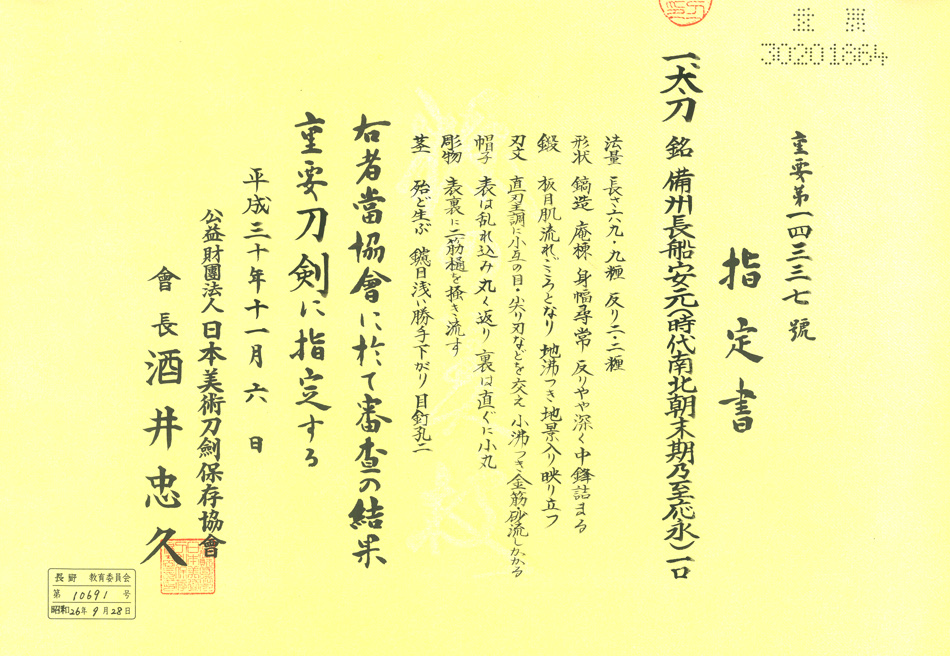 重要
30201864
重要第一四三三七號
指定書
一、太刀 銘 備州長船安元(時代南北朝末期乃至応永)一口
法量 長さ六九・九糎 反り二・二糎
形状 鎬造 庵棟 身幅尋常 反りやや深く中鋒詰まる
鍛 板目肌流れごころとなり 地沸つき地景入り映り立つ
刃文 直刃基調に小互の目・尖り刃などを交え 小沸つき金筋・砂流しかかる
帽子 表は乱れ込み丸く返り 裏は直ぐに小丸
彫物 表裏に二筋樋を掻き流す
茎 殆ど生ぶ 鑢目浅い勝手下がり 目釘孔二
右者當協會に於て審査の結果
重要刀剣に指定する
平成三十年十一月六日
公益財團法人日本美術刀劍保存協會
會長 酒井忠久
長野 教育委員会
第 10691 号
昭和26年9月28日